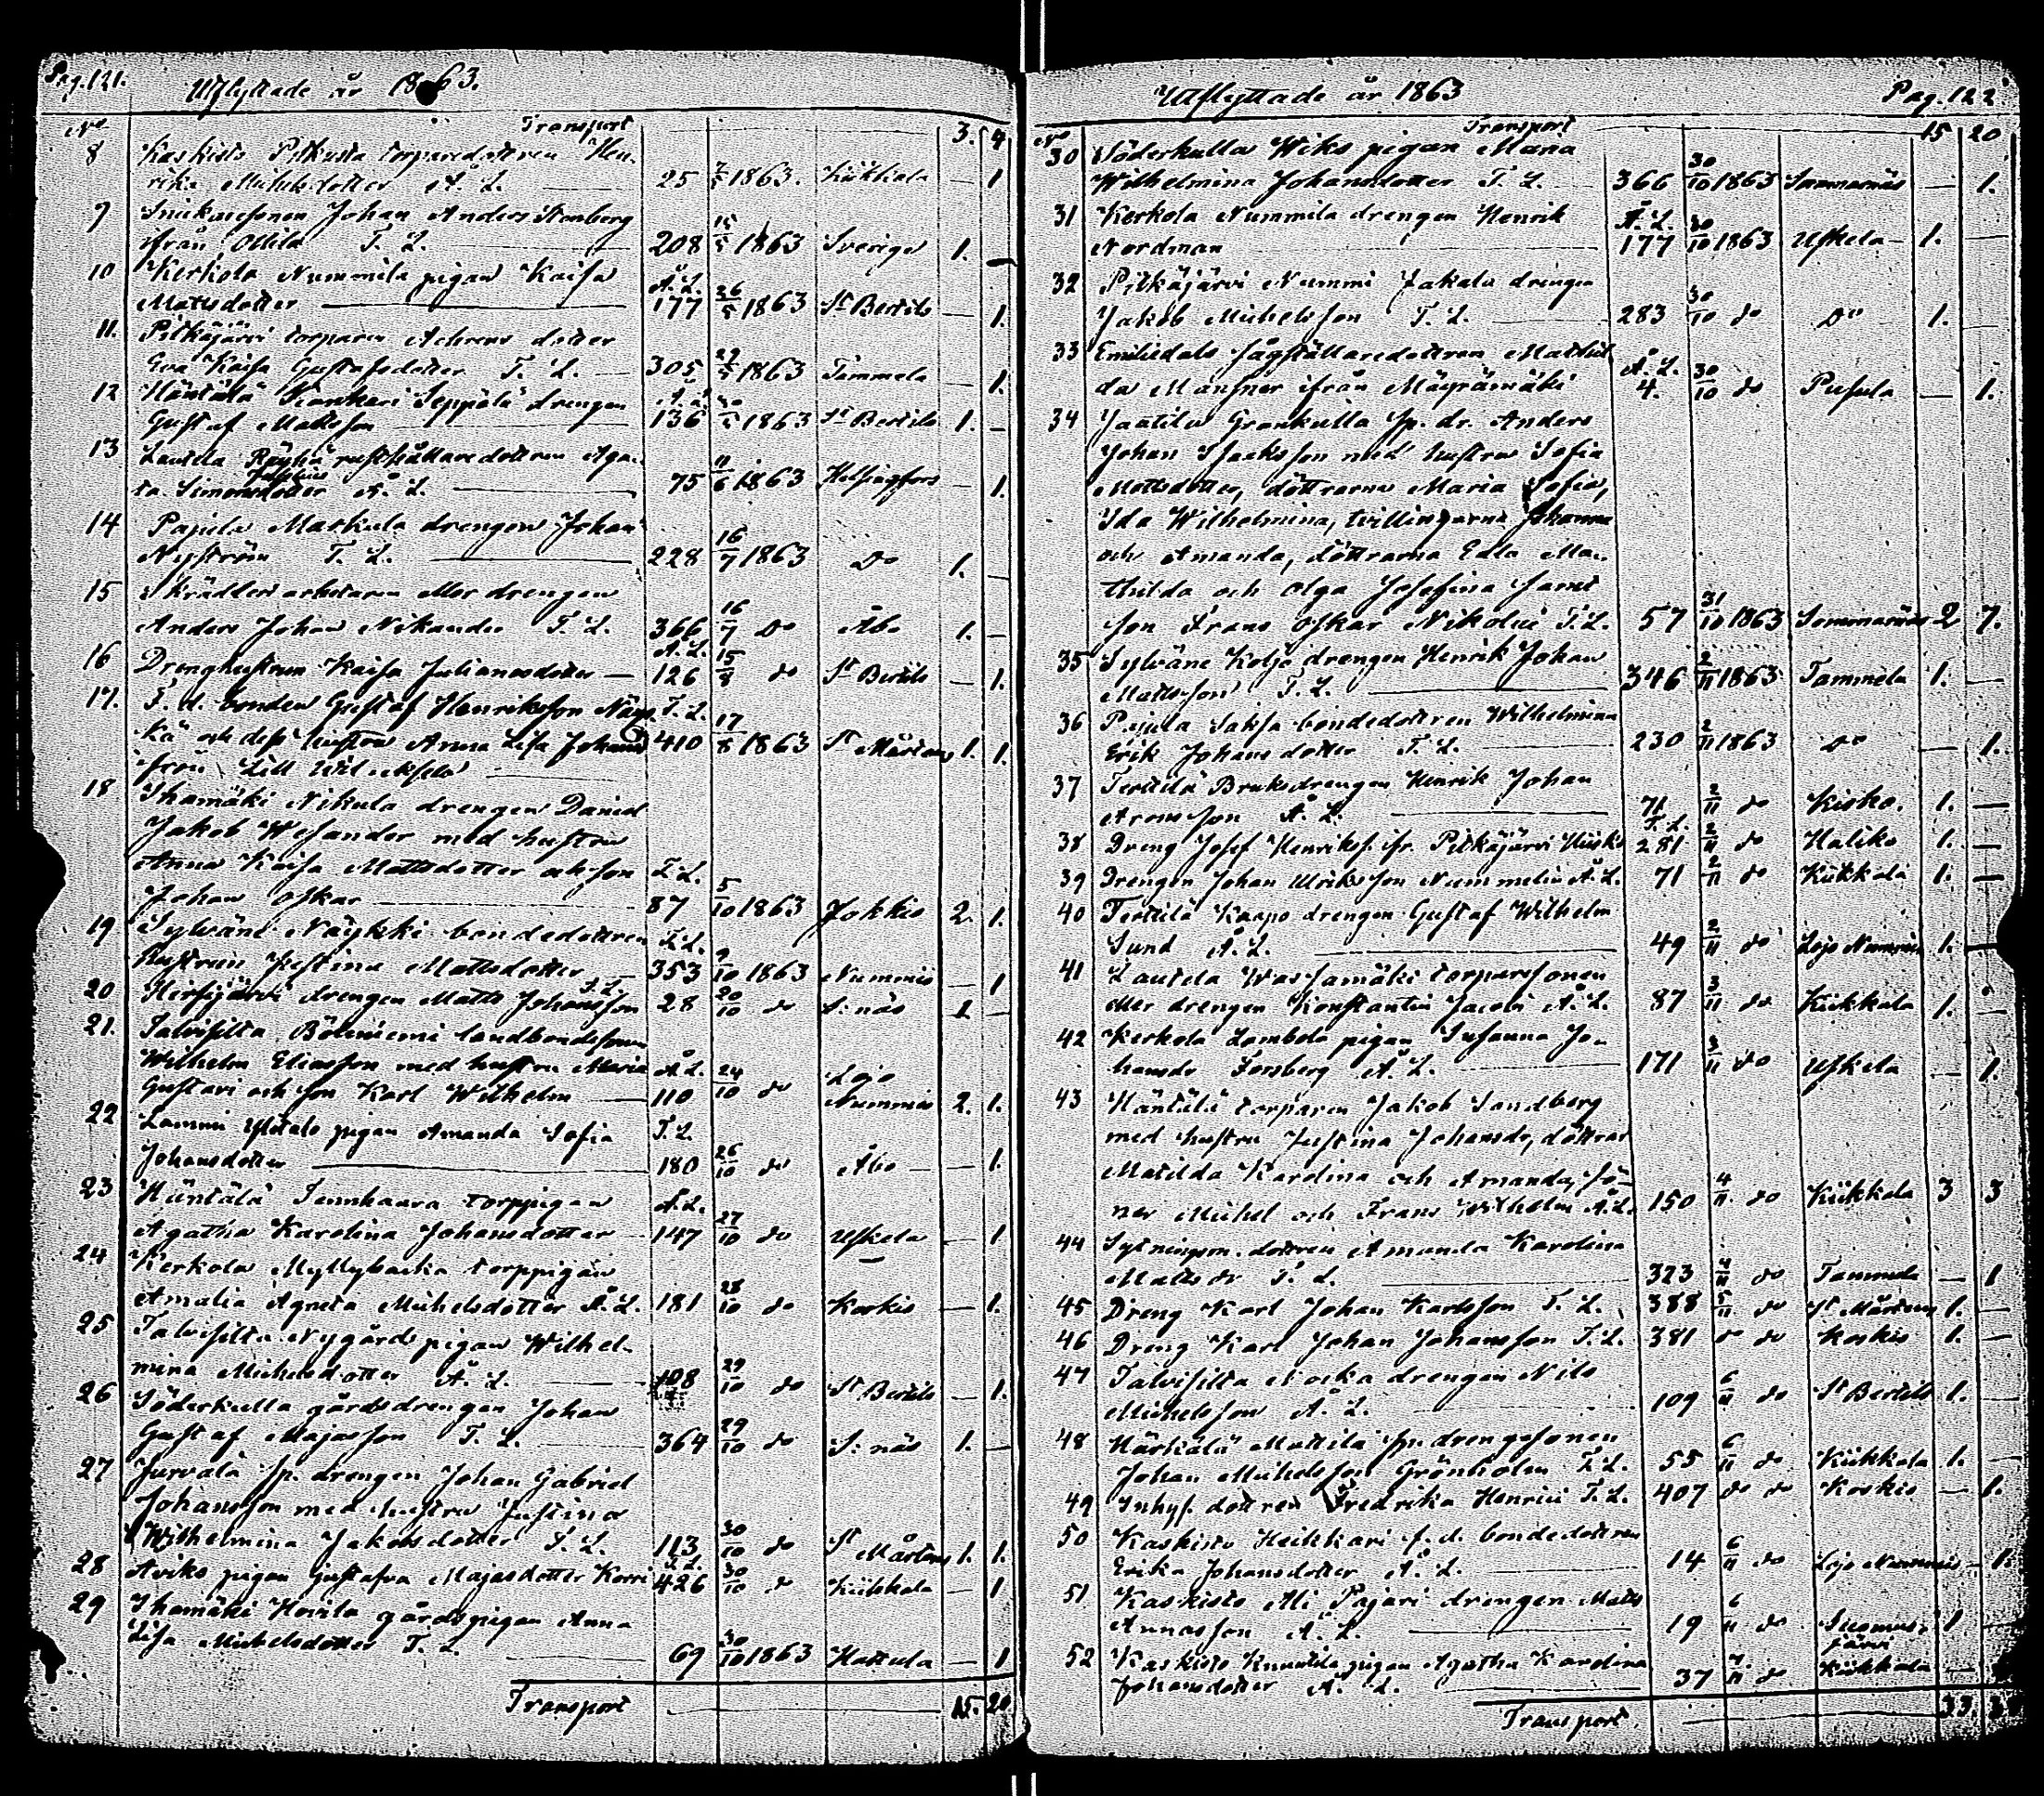 Pag. 121.
Utflyttade år 1863.
No Transport 3. 4
8 Kaskisto Pitkusta torparedottren Hen-
rika Michelsdotter Å. L. 25 1863. Kiikkala — 1
9 Snickaresonen Johan Anders Stenberg
ifrån Ollila T. L. 208 15/5 1863 Sverige 1. —
10 Kerkola Nummila pigan Kaisa Å. L.
Mattsdotter 177 26/5 1863 St Bertils — 1.
11. Pitkäjärvi torparen Achrens dotter
Eva Kaisa Gustafsdotter T. L. 305 1863 Tammela — 1.
12 Häntälä Seppälä drengen Å. L.
Gustaf Mattsson 136 1863 St Bertils 1. —
13 Lautela Räyhä rusthållaredottren Aga-
ta Simonsdotter Å. L. 75 11/6 1863 Helsingfors — 1.
14 Pajula Markula drengen Johan
Nyström T. L. 228 16/7 1863 Do 1. —
15 Skrädderiarbetaren eller drengen
Anders Johan Nikander T. L. 366 16/7 do Åbo 1. —
16 Dreng hustrun Kaisa Julianasdotter — Å. L. 126 15/8 do St Bertils — 1.
17. F. d. bonden Gustaf Henriksson Näyk- T. L.
kä och dess hustru Anna Lisa Johans 410 17/8 1863 St Mårtens 1. 1.
från Lill
18 Ihamäki Nikula drengen Daniel
Jakob Wesander med hustru
Anna Kaisa Mattsdotter och son T. L.
Johan Oskar 87 5/10 1863 Jokkis 2. 1.
19 Sylväne Näykki bondedottren T. L.
Hustrun Justina Mattsdotter 353 9/10 1863 Nummis — 1
20 Hirsijärvi drengen Matts Johansson T. L. 28 20/10 do S:näs 1 —
21. Talvisilta Böleniemi landbondesonen
Wilhelm Eliasson med hustru Maria Å. L.
Gustavi och son Karl Wilhelm 110 24/10 do Lojo Nummis 2. 1.
22 Lammi Ylitalo pigan Amanda Sofia T. L.
Johansdotter 180 26/10 do Åbo — 1.
23 Häntälä Sennhaara torppigan Å. L.
Agatha Karolina Johansdotter 147 27/10 do Uskela — 1
24 Kerkola Myllybacka torppigan
Amalia Agneta Michelsdotter Å. L. 181 28/10 do Koskis — 1.
25 Talvisilta Nygårds pigan Wilhel-
mina Michelsdotter Å. L. 108 29/10 do St Bertils — 1.
26 Söderkulla gårdsdrengen Johan
Gustaf Majasson T. L. 364 29/10 do S:näs 1. —
27 Jurvala sp. drengen Johan Gabriel
Johansson med hustru Justina
Wilhelmina Jakobsdotter T. L. 113 30/10 do St Mårtens 1. 1.
28 Ariko pigan Gustafva Majasdotter Korri T. L. 426 30/10 do Kiikkala — 1
29 Ihamäki Hovila gårdspigan Anna
Lisa Michelsdotter T. L. 69 30/10 1863 Hattula — 1
Transport 15. 20
Utflyttade år 1863 Pag. 122
No Transport 15 20
30 Söderkulla Wiks pigan Maria
Wilhelmina Johansdotter T. L. 366 30/10 1863 Sammarnäs — 1.
31 Kerkola Nummila drengen Henrik Å. L.
Nordman 177 30/10 1863 Uskela 1. —
32 Pitkäjärvi Nummi Jakala drengen
Jakob Michelsson T. L. 283 30/10 do Do 1. —
33 Emiliedals sågställaredottren Mathil-
da Mansner ifrån Märynämäki Å. L. 4. 30/10 do Pusula — 1.
34 Jaatila Grankulla sp. dr. Anders
Johan Isacksson med hustru Sofia
Mattsdotter, döttrarna Maria Sofia,
Ida Wilhelmina, tvillingarna Johanna
och Amanda, döttrarna Edla Ma-
thilda och Olga Josefina samt
son Frans Oskar Nikolai T. L. 57 31/10 1863 Sammarnäs 2 7.
35 Sylväne Koljo drengen Henrik Johan
Mattsson T. L. 346 2/11 1863 Tammela 1. —
36 Pajula Saksa bondedottren Wilhelmina
Erik Johansdotter T. L. 230 2/11 1863 Do — 1.
37 Terttilä Bruksdrengen Henrik Johan
Aronsson Å. L. 71 2/11 do Kisko. 1. —
38 Dreng Josef Henrikss. ifr. Pitkäjärvi Hiisko T. L. 281 2/11 do Haliko 1. —
39 Drengen Johan Ulriksson Nummelin Å. L. 71 2/11 do Kiikkala 1. —
40 Terttilä Kaapo drengen Gustaf Wilhelm
Sund Å. L. 49 2/11 do Lojo Nummis 1. —
41 Lautela Wassamäki torparesonen
eller drengen Konstantin Jacobi Å. L. 87 3/11 do Kiikkala 1. —
42 Kerkola Lambola pigan Susanna Jo-
hansdr Forsberg Å. L. 171 3/11 do Uskela — 1.
43 Häntälä torparen Jakob Sandberg
med hustru Justina Johansdr, döttrar
Matilda Karolina och Amanda, sö-
ner Michel och Frans Wilhelm Å. L. 150 4/11 do Kiikkala 3 3
44 Sytningsm. dottren Amanda Karolina
Matts dr T. L. 323 4/11 do Tammela — 1
45 Dreng Karl Johan Karlsson T. L. 388 5/11 do St Mårtens 1. —
46 Dreng Karl Johan Johansson T. L. 381 do do Koskis 1. —
47 Talvisilta Nocka drengen Nils
Michelsson Å. L. 109 6/11 do St Bertils 1. —
48 Härkälä Mattila sp. drengesonen
Johan Michelsson Grönholm T. L. 55 6/11 do Kiikkala 1. —
49 Inhys. dottren Fredrika Henrici T. L. 407 do do Koskis — 1.
50 Kaskisto Heikkari f. d. bondedottren
Erika Johansdotter Å. L. 14 6/11 do Lojo Nummis — 1.
51 Kaskisto Ali Pajari drengen Matts
Annasson Å. L. 19 6/11 do Suomusjärvi 1 —
52 Kaskisto Knuutila pigan Agatha Karolina
Johansdotter Å. L. 37 7/11 do Kiikkala —
Transport. 33